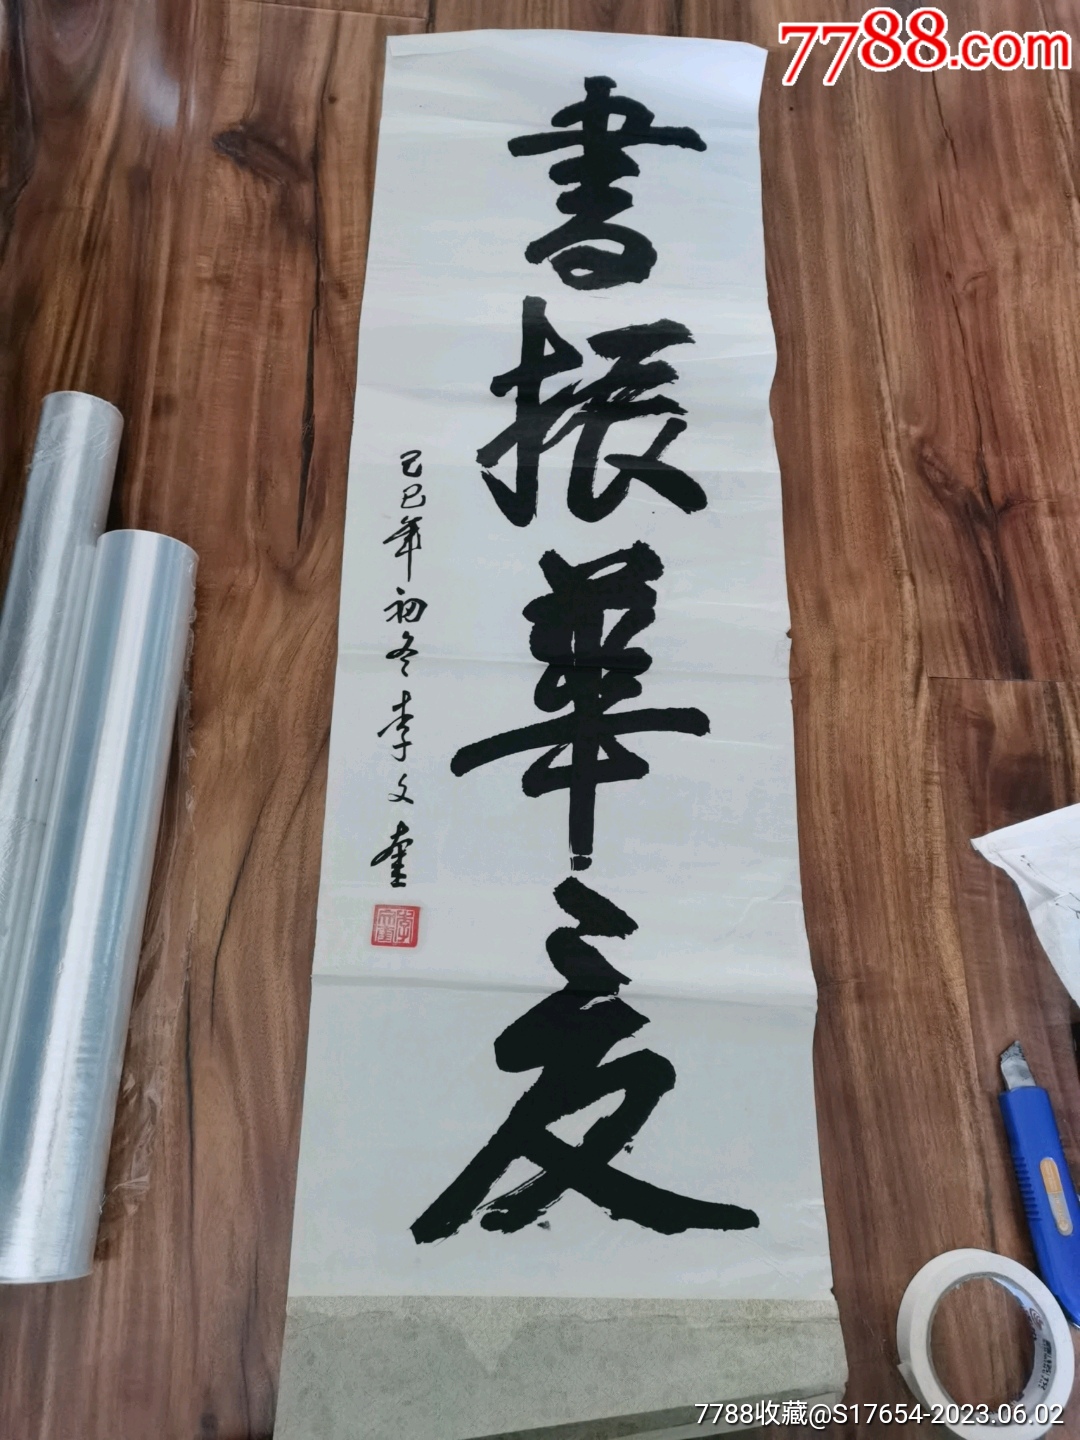 7788.com
書振華夏
己巳年初冬李文奎
7788收藏@S17654-2023.06.02